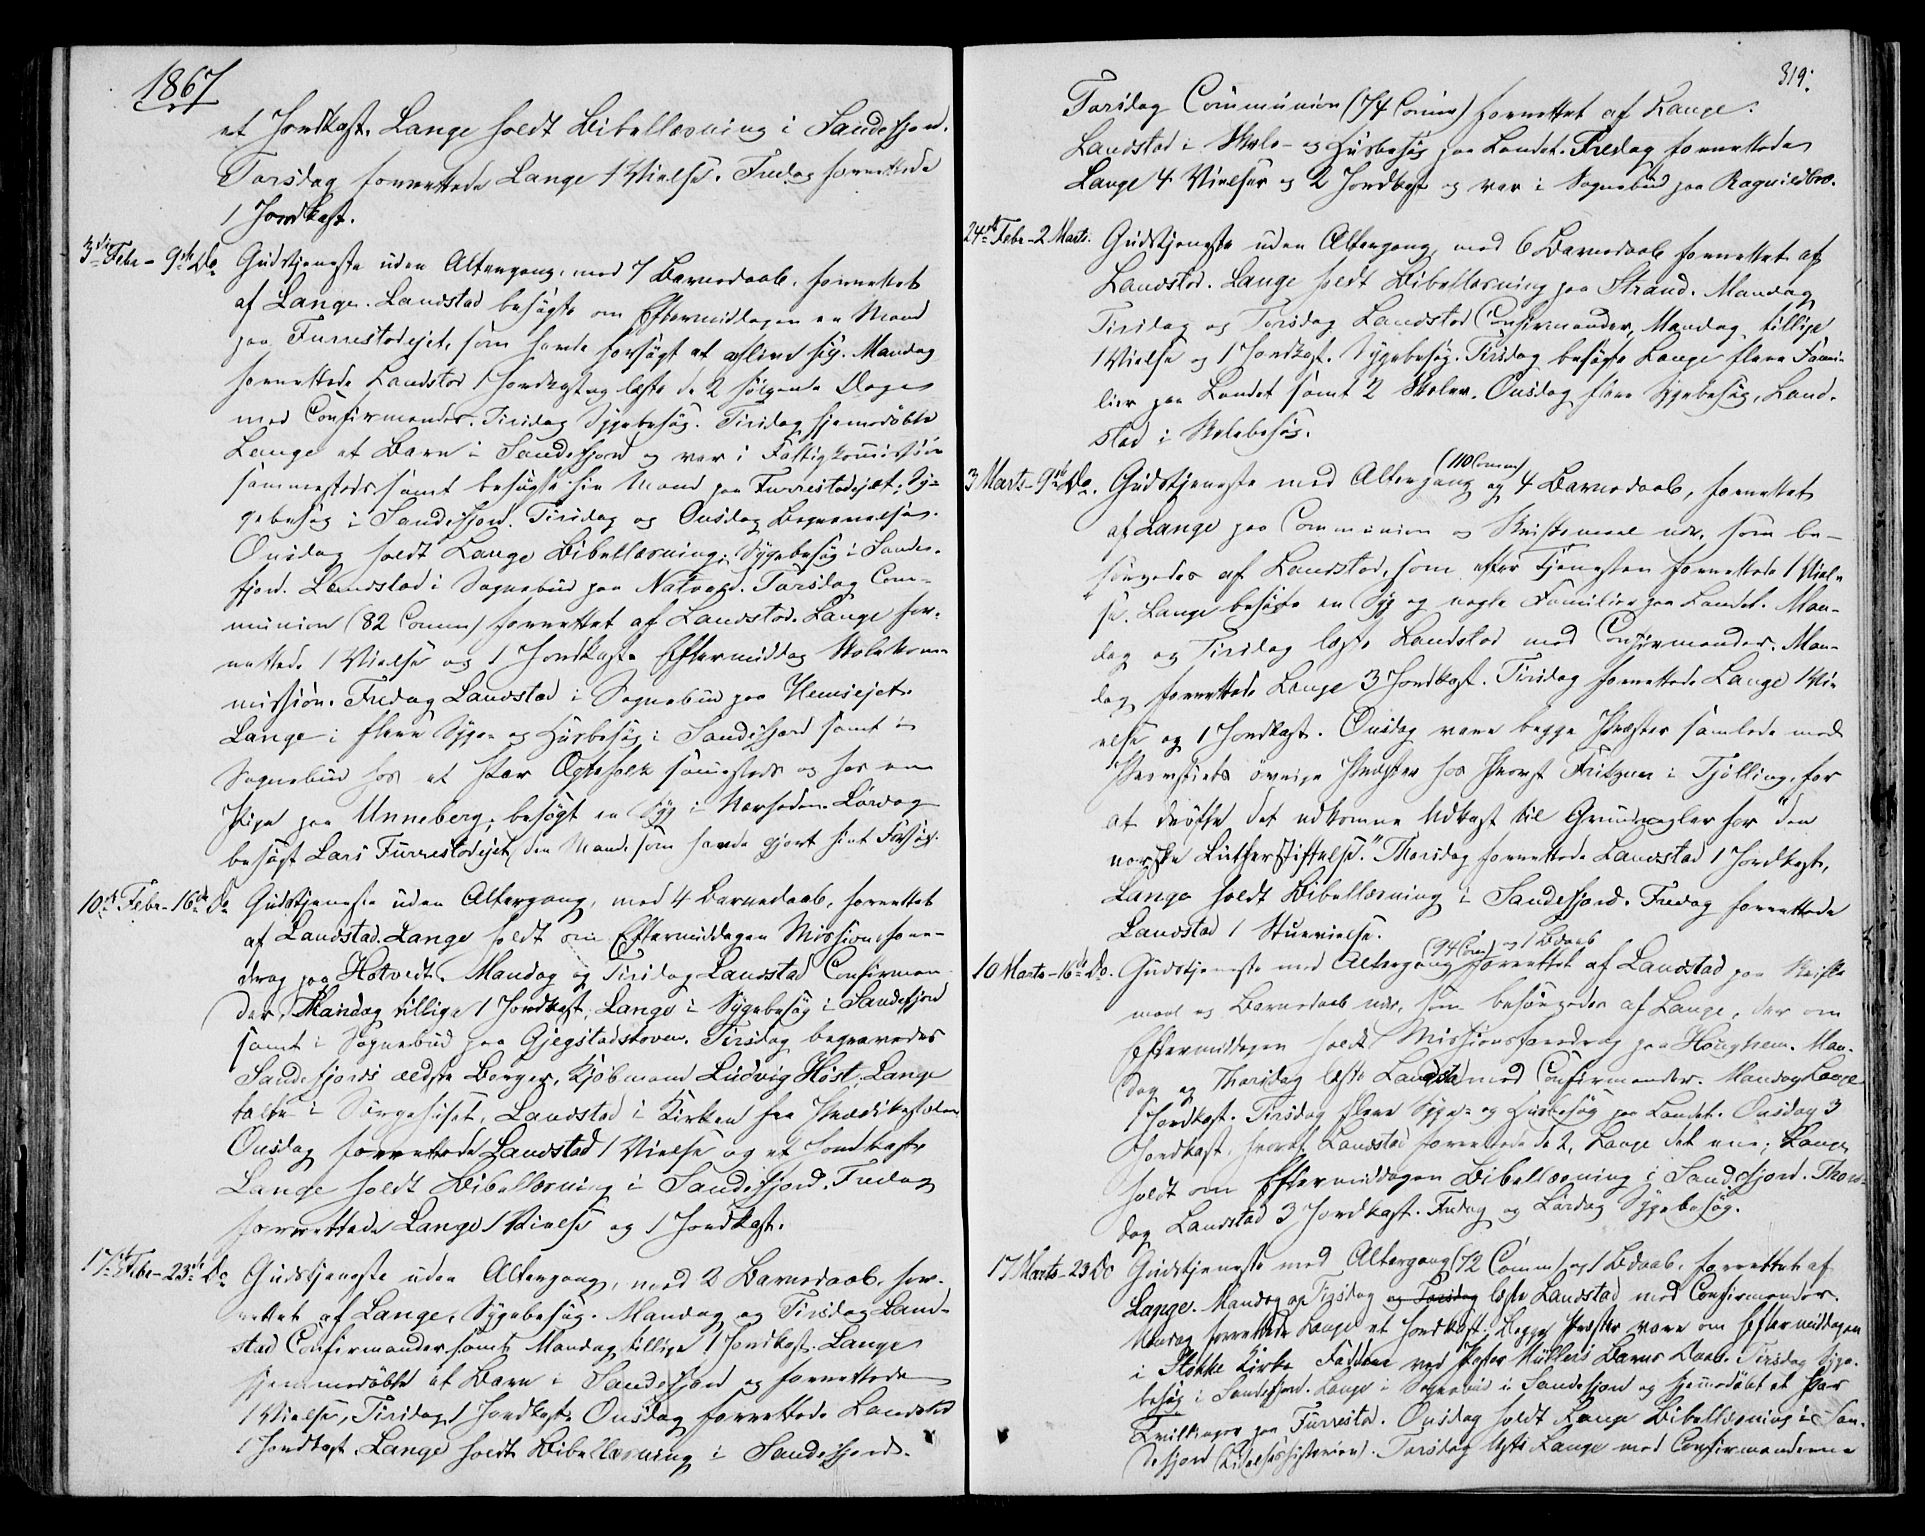 1867
et Jordkast. Lange holdt Bibellæsning i Sandefjord.
Torsdag forrettede Lange 1 Vielse. Fredag forrettede
1 Jordkast.
3die Febr - 9de Do Gudstjeneste uden Altergang, med 7 Barnedaab, forrettet
af Lange. Landstad besøgte om Eftermiddagen en Mand
paa Furrestadejet, som havde forsøgt at aflive sig. Mandag
forrettede Landstad 1 Jordkast og læste de 2 følgende Dage
med Confirmander. Tirsdag Sygebesøg. Tirsdag hjemmedøbte
Lange et Barn i Sandefjord og var i Fattigkommission
sammesteds samt besøgte hin Mand paa Furrestadejet; Sy-
gebesøg i Sandefjord. Tirsdag og Onsdag Begravelse.
Onsdag holdt Lange Bibellæsning; Sygebesøg i Sande-
fjord. Landstad i Sognebud paa Natvald. Torsdag Com-
munion (82 Comm) forrettet af Landstad. Lange for-
rettede 1 Vielse og 1 Jordkast. Eftermiddag Skolekom-
mission. Fredag Landstad i Sognebud paa Hemsejet.
Lange i flere Syge- og Husbesøg i Sandefjord samt i
Sognebud hos et Par Ægtefolk sammesteds og hos en
Pige paa Unneberg; besøgt en Syg i Nærheden. Lørdag
besøgt Lars Furrestadejet, den Mand, som havde gjort hint Forsøg.
10de Febr - 16de Do Gudstjeneste uden Altergang, med 4 Barnedaab, forrettet
af Landstad. Lange holdt om Eftermiddagen Missionsfore-
drag paa Hotvedt. Mandag og Tirsdag Landstad Confirman-
der, Mandag tillige 1 Jordkast; Lange i Sygebesøg i Sandefjord
samt i Sognebud paa Gjegstadskoven. Tirsdag begravedes
Sandefjords ældste Borger, Kjøbmand Ludvig Høst; Lange
talte i Sørgehuset, Landstad i Kirken fra Prædikestolen
Onsdag forrettede Landstad 1 Vielse og et Jordkast.
Lange holdt Bibellæsning i Sandefjord. Fredag
forrettede Lange 1 Vielse og 1 Jordkast.
17de Febr - 23de Do Gudstjeneste uden Altergang, med 2 Barnedaab, for-
rettet af Lange, Sygebesøg. Mandag og Tirsdag Land-
stad Confirmander samt Mandag tillige 1 Jordkast. Lange
hjemmedøbte et Barn i Sandefjord og forrettede
1 Vielse, Tirsdag 1 Jordkast. Onsdag forrettede Landstad
1 Jordkast. Lange holdt Bibellæsning i Sandefjord.
319.
Torsdag Communion (74 Comm) forrettet af Lange.
Landstad i Skole- og Husbesøg paa Landet. Fredag forrettede
Lange 4 Vielser og 2 Jordkast og var i Sognebud paa Ragnildbro.
24de Febr - 2 Marts. Gudstjeneste uden Altergang, med 6 Barnedaab forrettet af
Landstad. Lange holdt Bibellæsning paa Strand. Mandag
Tirsdag og Torsdag Landstad Confirmander, Mandag tillige
1 Vielse og 1 Jordkast. Sygebesøg. Tirsdag besøgte Lange flere Fami-
lier paa Landet samt 2 Skoler. Onsdag flere Sygebesøg, Land-
stad i Skolebesøg.
3 Marts - 9de Do. Gudstjeneste med Altergang (110 Comm) og 4 Barnedaab, forrettet
af Lange paa Communion og Skriftemaal nær, som be-
sørgedes af Landstad, som efter Tjenesten forrettede 1 Viel-
se. Lange besøgte en Syg og nogle Familier paa Landet. Man-
dag og Tirsdag læste Landstad med Confirmander. Man-
dag forrettede Lange 3 Jordkast. Tirsdag forrettede Lange 1 Vi-
else og 1 Jordkast. Onsdag vare begge Præster samlede med
Provstiets øvrige Præster hos Provst Fritzner i Tjølling, for
at drøfte det udkomne Udkast til Grundregler for "den
norske Lutherstiftelse." Thorsdag forrettede Landstad 1 Jordkast,
Lange holdt Bibellæsning i Sandefjord. Fredag forrettede
Landstad 1 Stuevielse.
10 Marts - 16de Do. Gudstjeneste med Altergang (94 Com) og 1 Bdaab forrettet af Landstad paa Skrifte
maal og Barnedaab nær, som besørgedes af Lange, der om
Eftermiddagen holdt Missionsforedrag paa Haughem. Man-
dag og Thorsdag læste Landstad med Confirmander. Mandag Lange
1 Jordkast. Tirsdag flere Syge- og Husbesøg paa Landet. Onsdag 3
Jordkast, hvoraf Landstad forrettede de 2, Lange det ene; Lange
holdt om Eftermiddagen Bibellæsning i Sandefjord. Thors-
dag Landstad 3 Jordkast. Fredag og Lørdag Sygebesøg.
17 Marts - 23 Do Gudstjeneste med Altergang (72 Comm) og 1 Bdaab, forrettet af
Lange. Mandag og Tirsdag og Torsdag læste Landstad med Confirmander.
Mandag forrettede Lange et Jordkast; begge Præster vare om Eftermiddagen
i Stokke Kirke Faddere ved Pastor Müllers Barns Daab. Tirsdag Syge-
besøg i Sandefjord. Lange i Sognebud i Sandefjord og hjemmedøbt et Par
Tvillinger paa Furrestad. Onsdag holdt Lange Bibellæsning i San-
defjord (Lidelseshistorien). Torsdag læste Lange med Confirmanderne